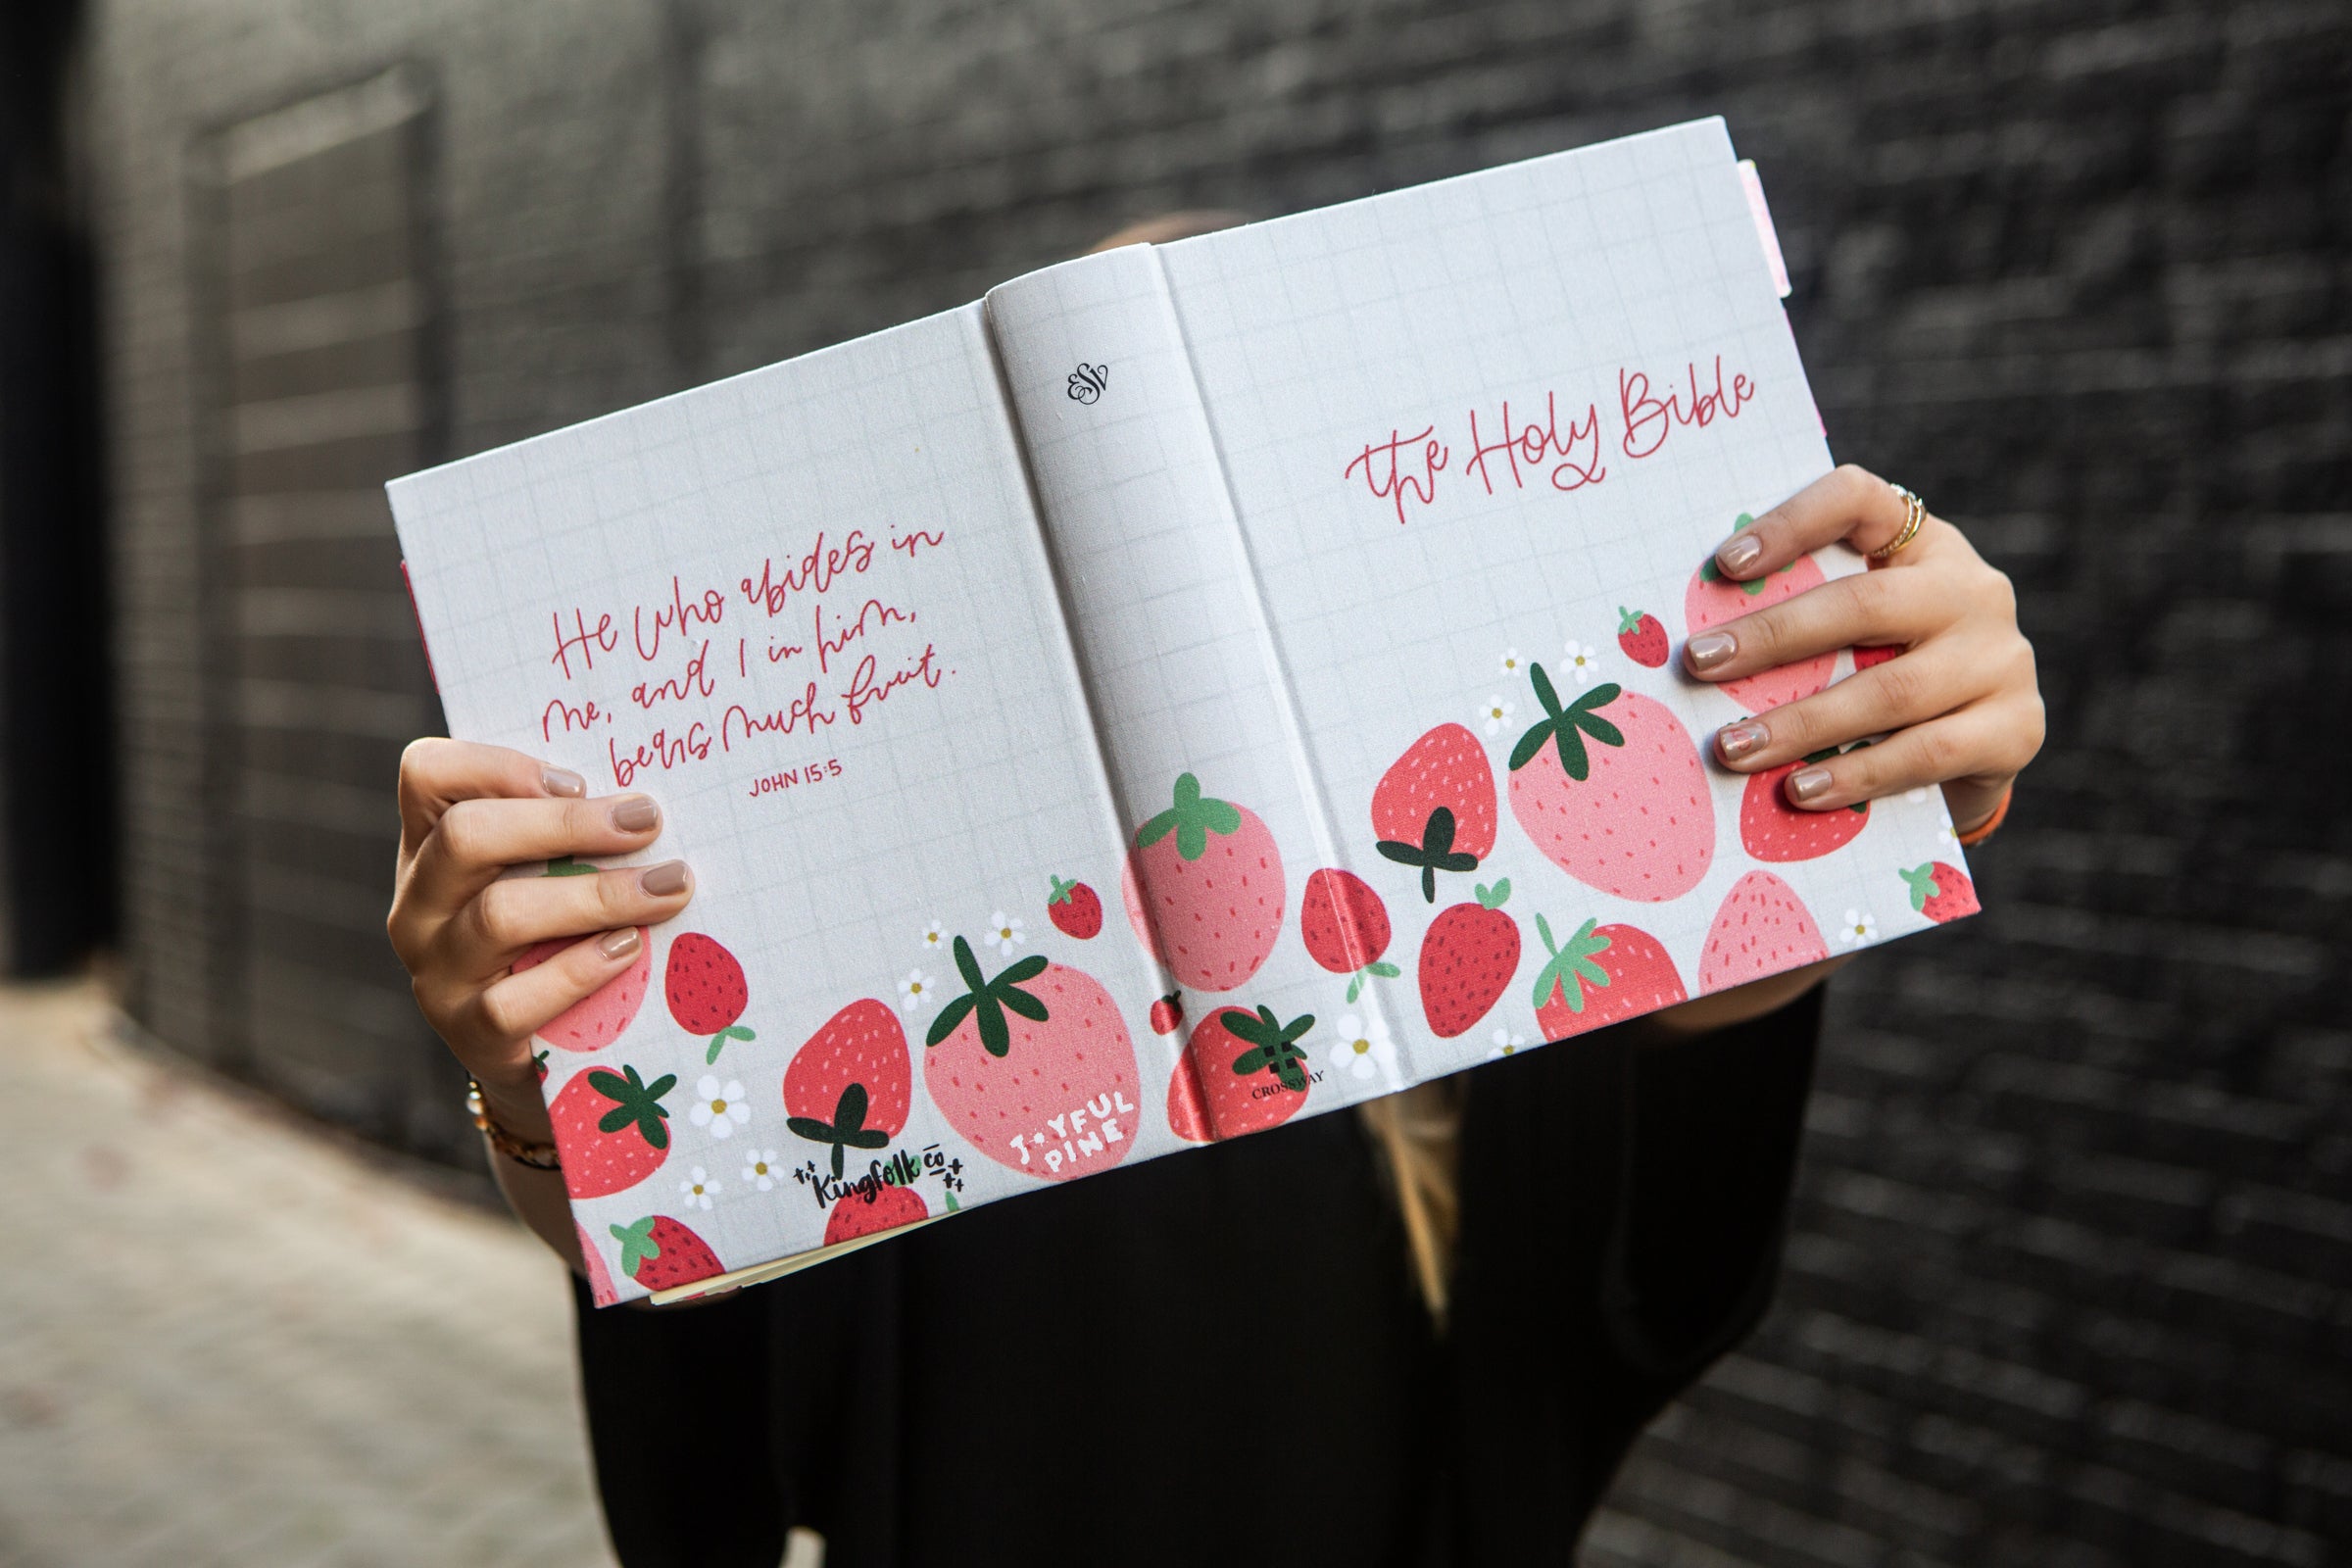 He who abides in
me, and I in him,
bears much fruit.
JOHN 15:5
Kingfolk co
JOYFUL
PINE
ESV
CROSSWAY
the Holy Bible